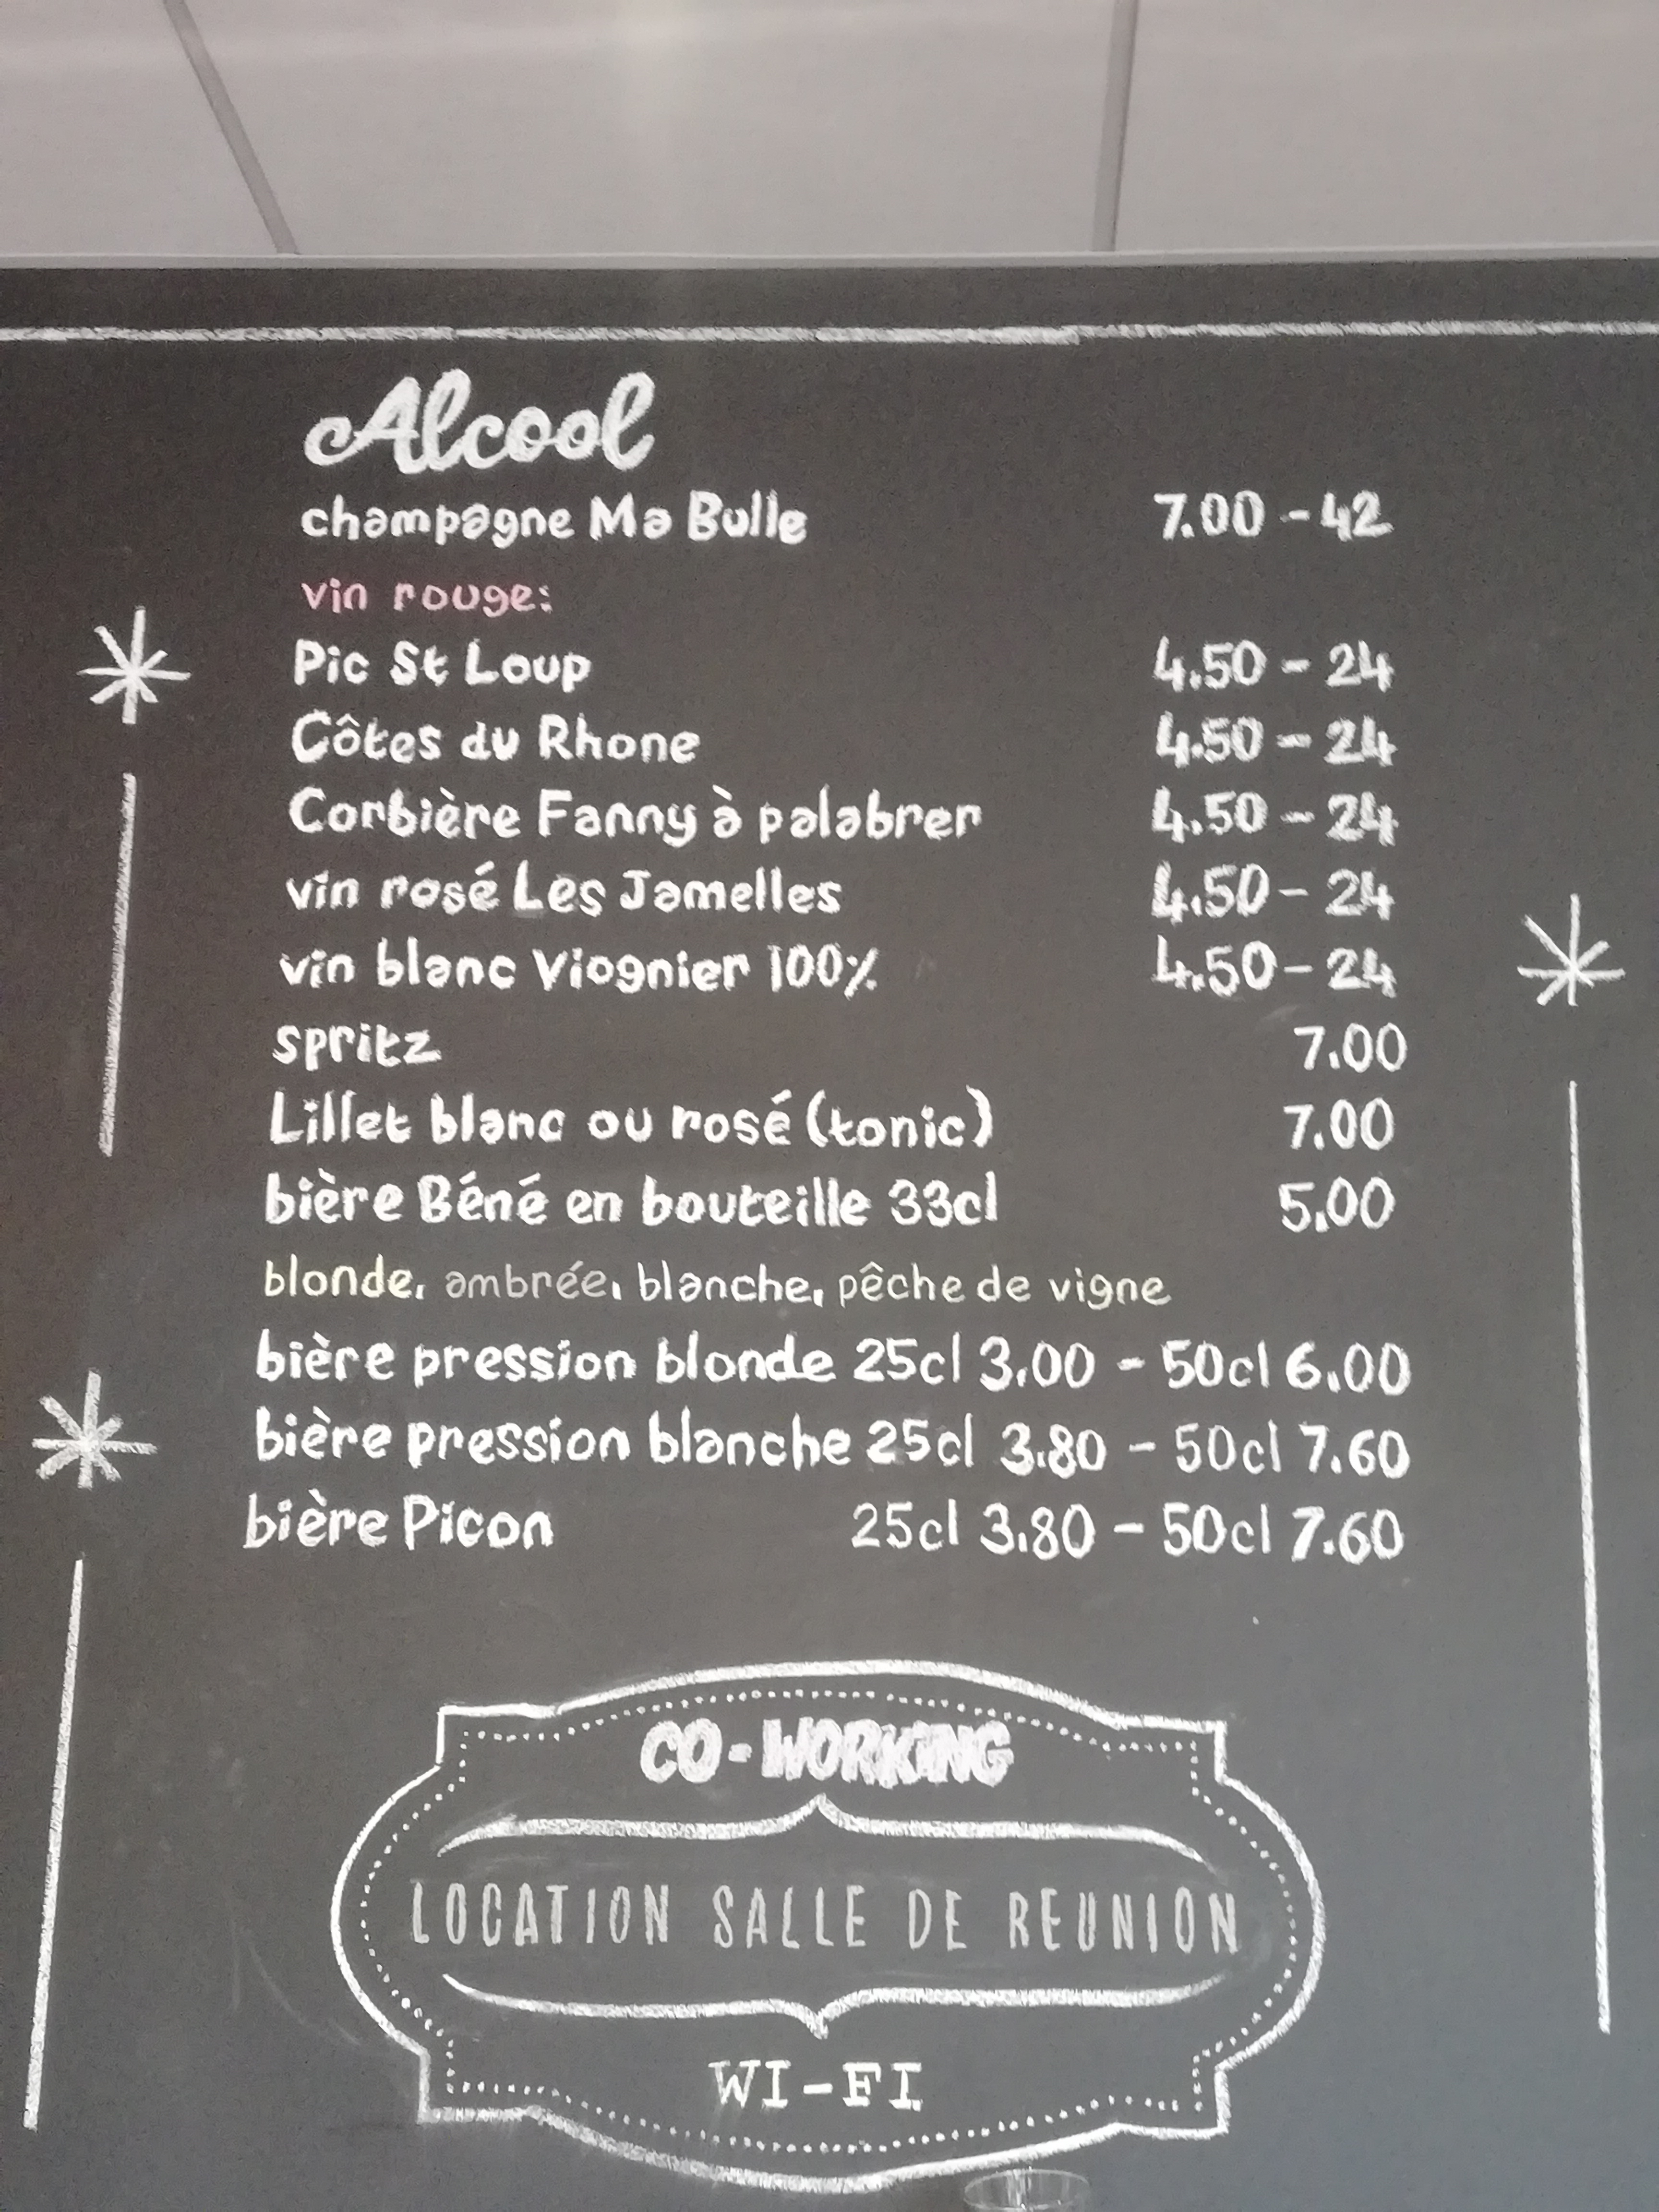 Alcool
champagne Ma Bulle 7.00 - 42
vin rouge:
Pic St Loup 4.50 - 24
Côtes du Rhone 4.50 - 24
Corbière Fanny à palabrer 4.50 - 24
vin rosé Les Jamelles 4.50 - 24
vin blanc Viognier 100% 4.50 - 24
spritz 7.00
Lillet blanc ou rosé (tonic) 7.00
bière Béné en bouteille 33cl 5.00
blonde, ambrée, blanche, pêche de vigne
bière pression blonde 25cl 3.00 - 50cl 6.00
bière pression blanche 25cl 3.80 - 50cl 7.60
bière Picon 25cl 3.80 - 50cl 7.60
CO-WORKING
LOCATION SALLE DE REUNION
WI-FI